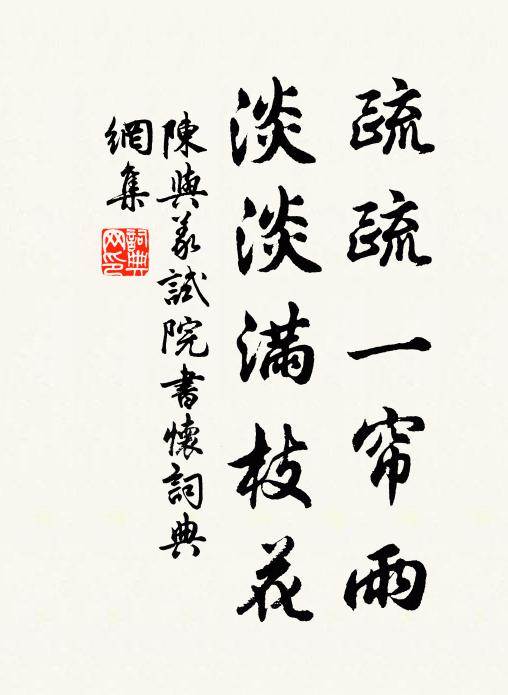 疏疏一帘雨
淡淡满枝花
陳與义試院書懷詞典
網集
詞典
网印